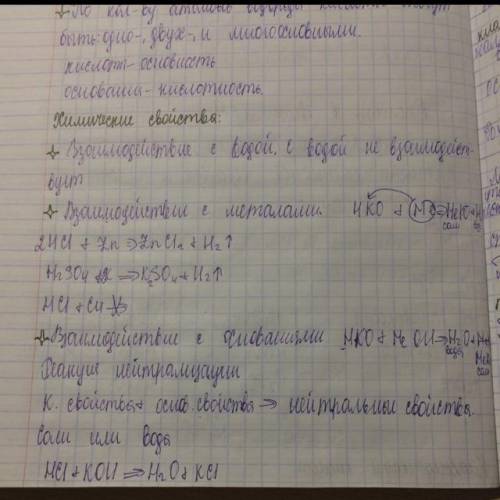 По кол-ву атомов водорода кислоты могут
быть: одно-, двух-, и многоосновными.
кислоты - основность
основания - кислотность.
Химические свойства:
Взаимодействие с водой. с водой не взаимодейст-
вует
Взаимодействие с металами. HKO + Me ⇒ MeKO + H₂
соль
2HCl + Zn ⇒ ZnCl₂ + H₂↑
H₂SO₄ + K ⇒ K₂SO₄ + H₂↑
HCl + Cu
Взаимодействие с основаниями HKO + MeOH ⇒ H₂O +
вода
Реакция нейтрализации
соль
К. свойства + основ. свойства ⇒ нейтральные свойства
соли или воды
HCl + KOH ⇒ H₂O + KCl